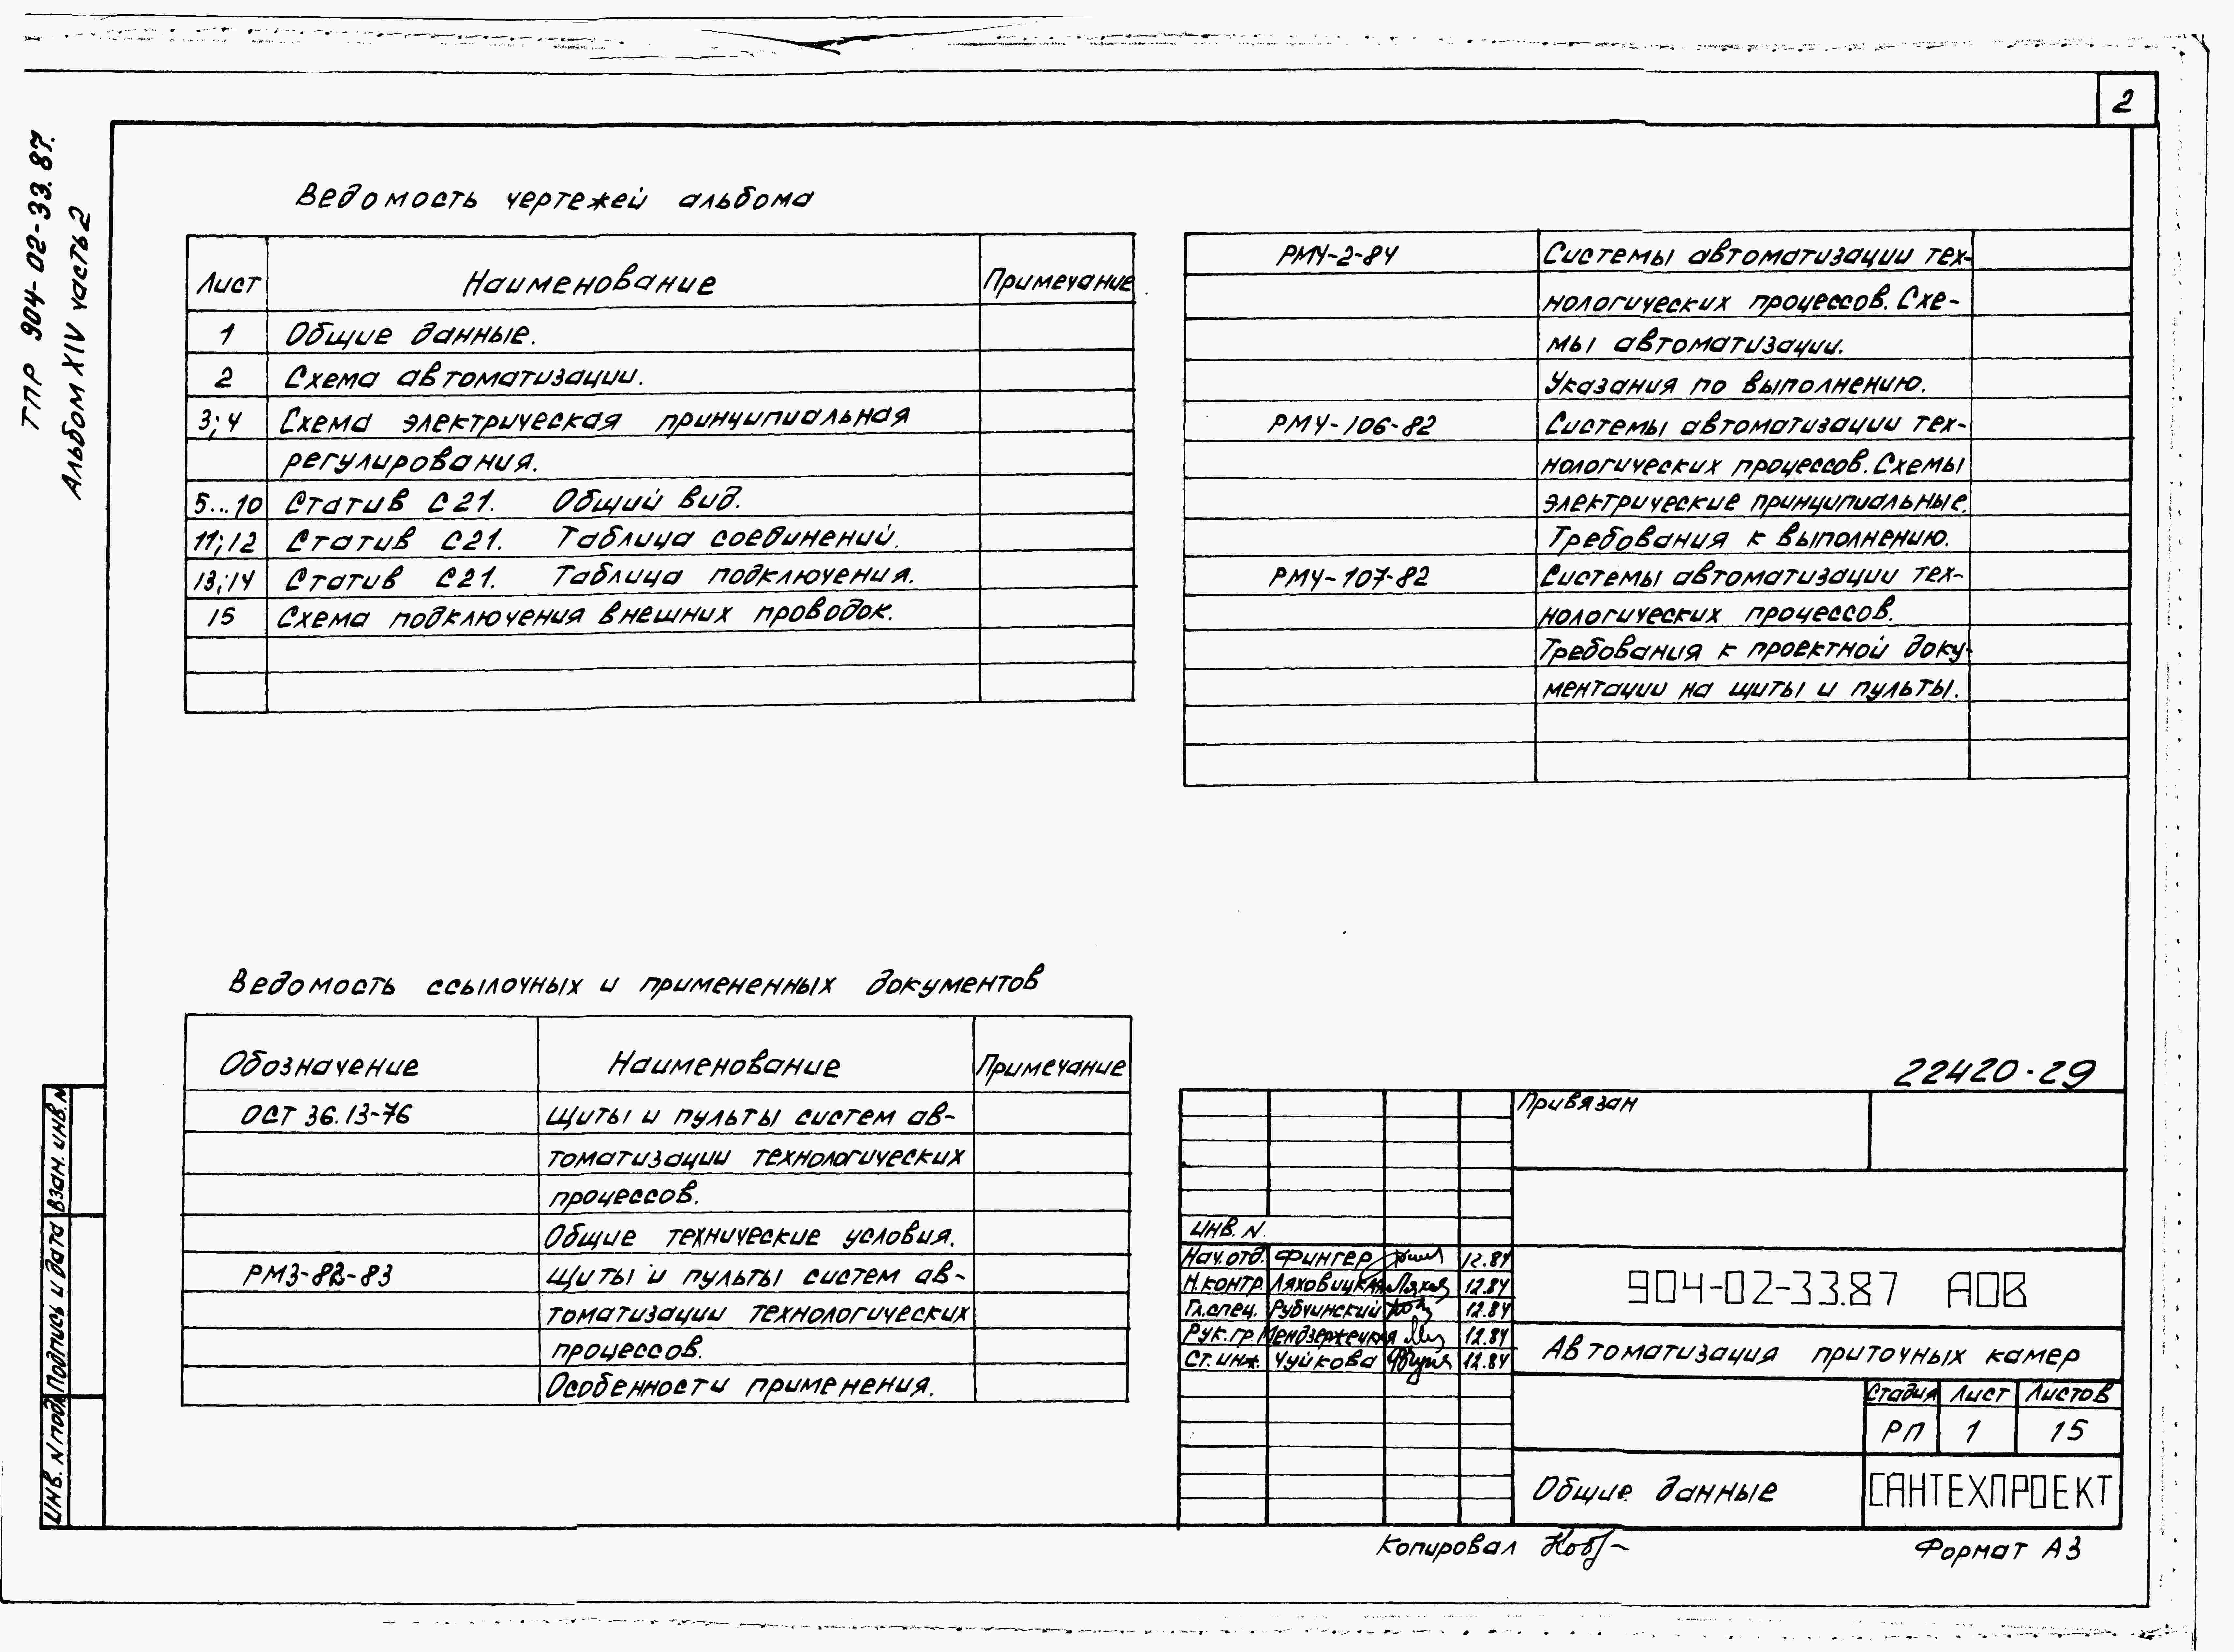 2
ТПР 904-02-33.87.
Альбом XIV часть 2
Ведомость чертежей альбома
Лист Наименование Примечание
1 Общие данные.
2 Схема автоматизации.
3;4 Схема электрическая принципиальная
регулирования.
5...10 Статив С21. Общий вид.
11;12 Статив С21. Таблица соединений.
13;14 Статив С21. Таблица подключения.
15 Схема подключения внешних проводок.
РМ4-2-84 Системы автоматизации тех-
нологических процессов. Схе-
мы автоматизации.
Указания по выполнению.
РМ4-106-82 Системы автоматизации тех-
нологических процессов. Схемы
электрические принципиальные.
Требования к выполнению.
РМ4-107-82 Системы автоматизации тех-
нологических процессов.
Требования к проектной доку-
ментации на щиты и пульты.
Ведомость ссылочных и примененных документов
Обозначение Наименование Примечание
ОСТ 36.13-76 Щиты и пульты систем ав-
томатизации технологических
процессов.
Общие технические условия.
РМ3-82-83 Щиты и пульты систем ав-
томатизации технологических
процессов.
Особенности применения.
22420-29
Привязан
Инв. N
Нач.отд. Фингер 12.84
Н.контр. Ляховицкая 12.84
Гл.спец. Рубчинский 12.84
Рук.гр. Мендзержецкая 12.84
Ст.инж. Чуйкова 12.84
904-02-33.87 АОВ
Автоматизация приточных камер
Стадия Лист Листов
РП 1 15
Общие данные
САНТЕХПРОЕКТ
Взам. инв. N
Подпись и дата
Инв. N подл.
Копировал
Формат А3